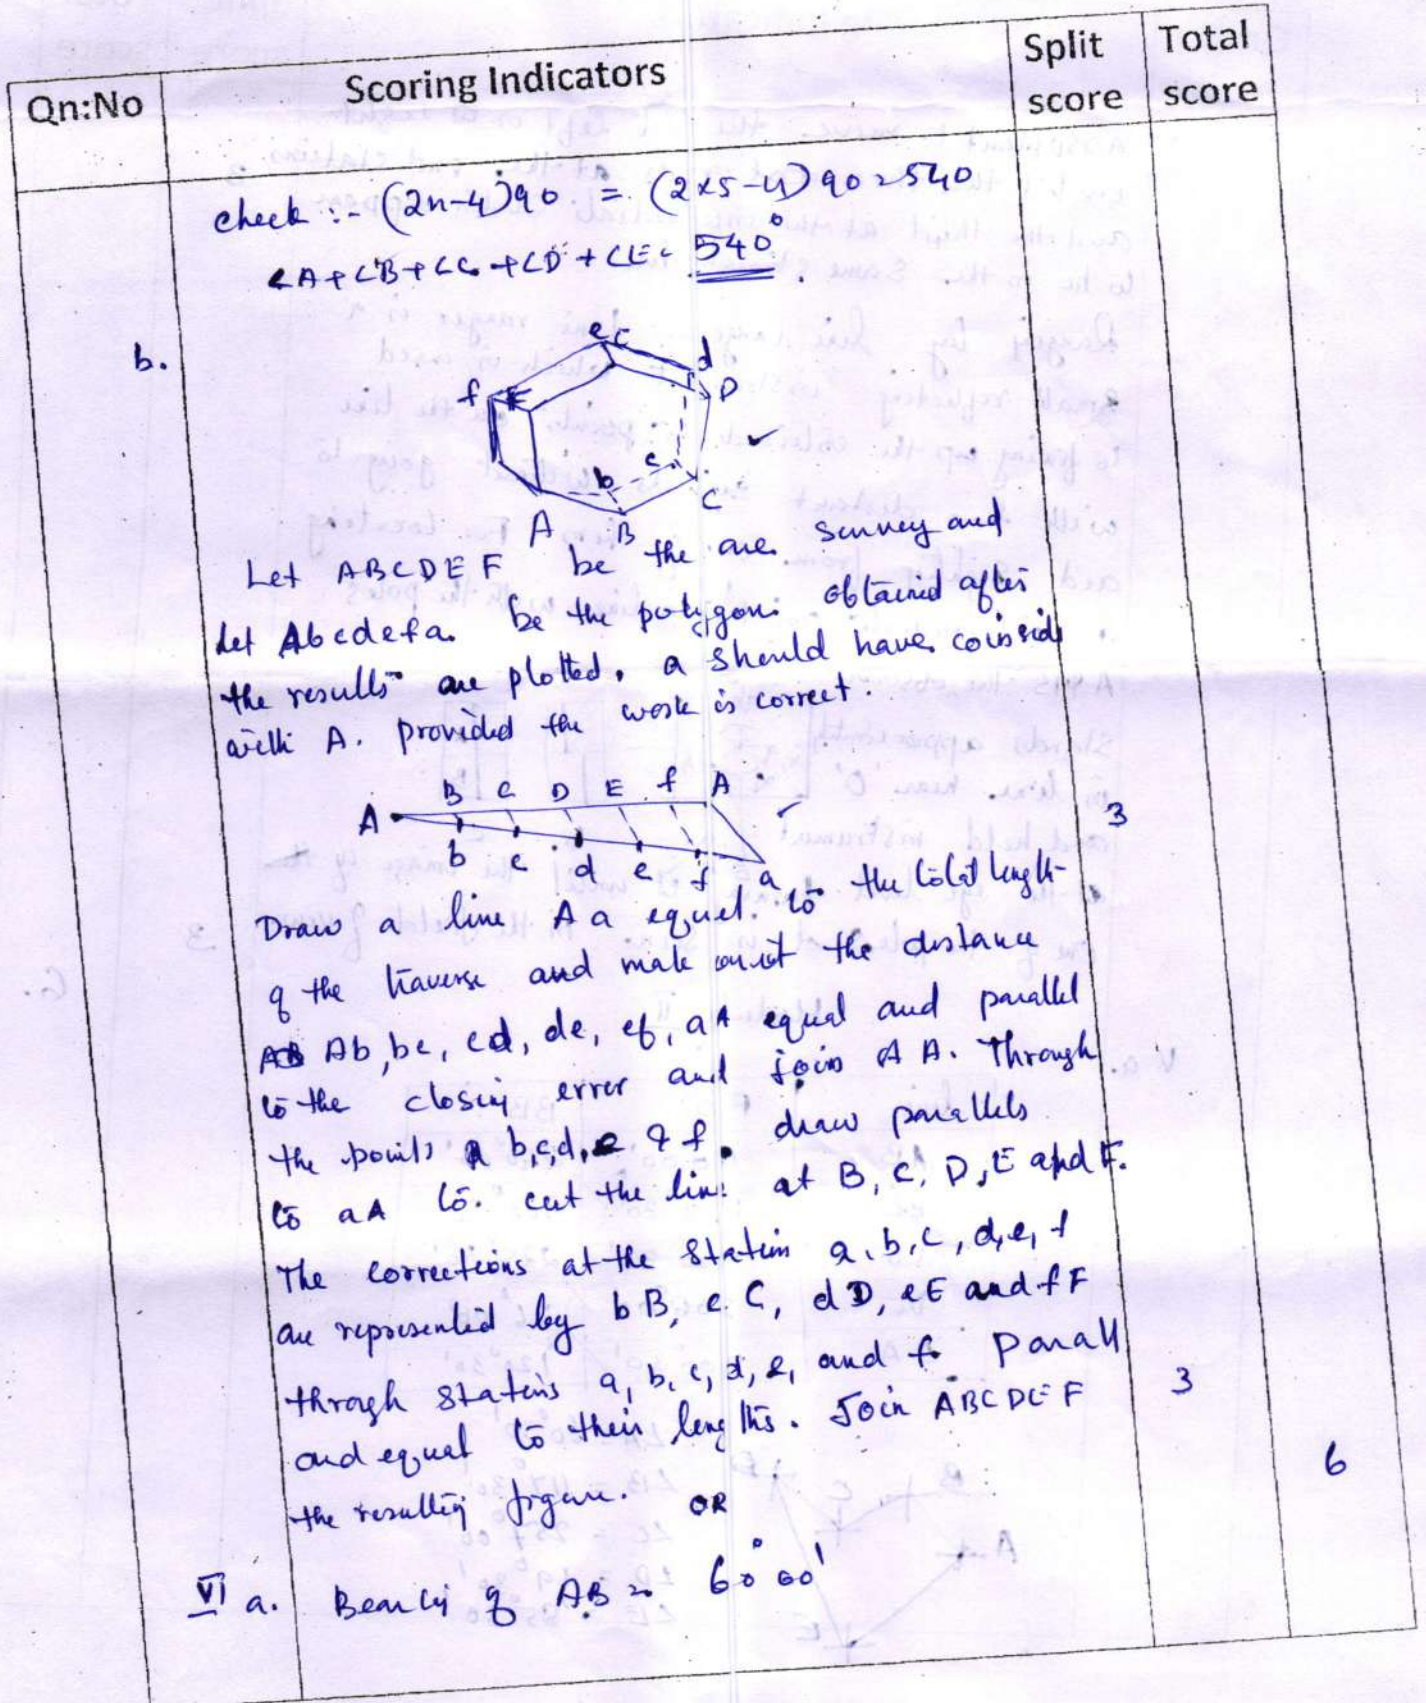 Qn:No Scoring Indicators Split score Total score
check :- (2n-4)90 = (2x5-4)90=540
<A+<B+<C+<D+<E= 540°.
b.
e c
d
f E
D
b c
C
A B
Let ABCDEF be the are survey and
Let Abcdefa. be the polygon obtained after
the results are plotted, a should have coinside
with A. provided the work is correct.
B C D E f A
A
b c d e f a
3
Draw a line A a equal to the total length
of the traverse and mark the distance
Ab, bc, cd, de, ef, aA equal and parallel
to the closing error and join A A. Through
the points b,c,d,e & f. draw parallels
to aA to. cut the line at B, C, D, E and F.
The corrections at the station a, b, c, d, e, f
are represented by bB, cC, dD, eE and fF
through stations a, b, c, d, e, and f. Parall
and equal to their lengths. Join ABCDEF 3
the resulting figure. 6
OR
VI a. Bearing of AB = 60°00'